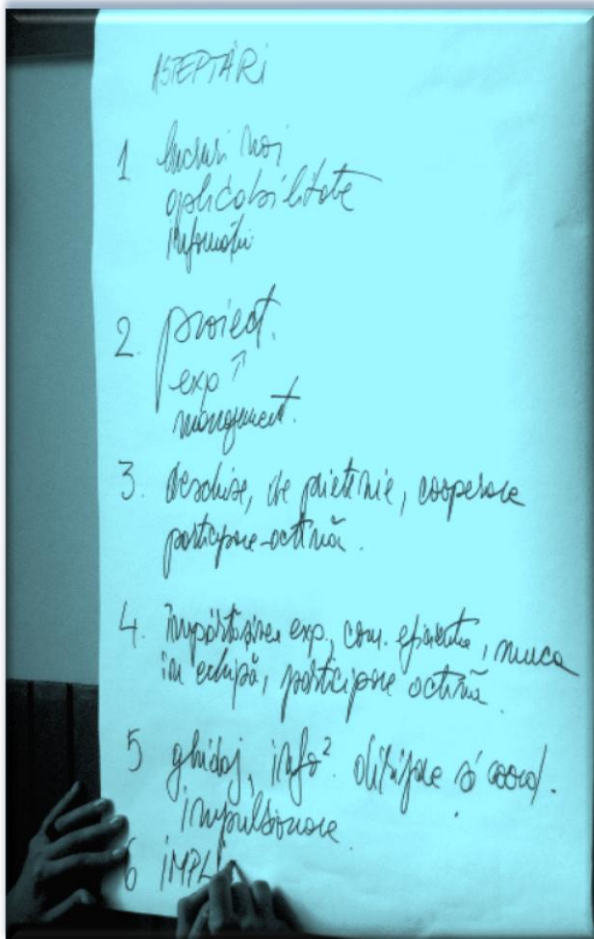 AȘTEPTĂRI
1 lucruri noi
aplicabilitate
informații
2. proiect.
exp ↑
management.
3. deschise, de prietenie, cooperare
participare activă.
4. împărtășirea exp., com. eficientă, munca
în echipă, participare activă.
5 ghidaj, info². dirijare și coord.
impulsionare.
6 IMPL